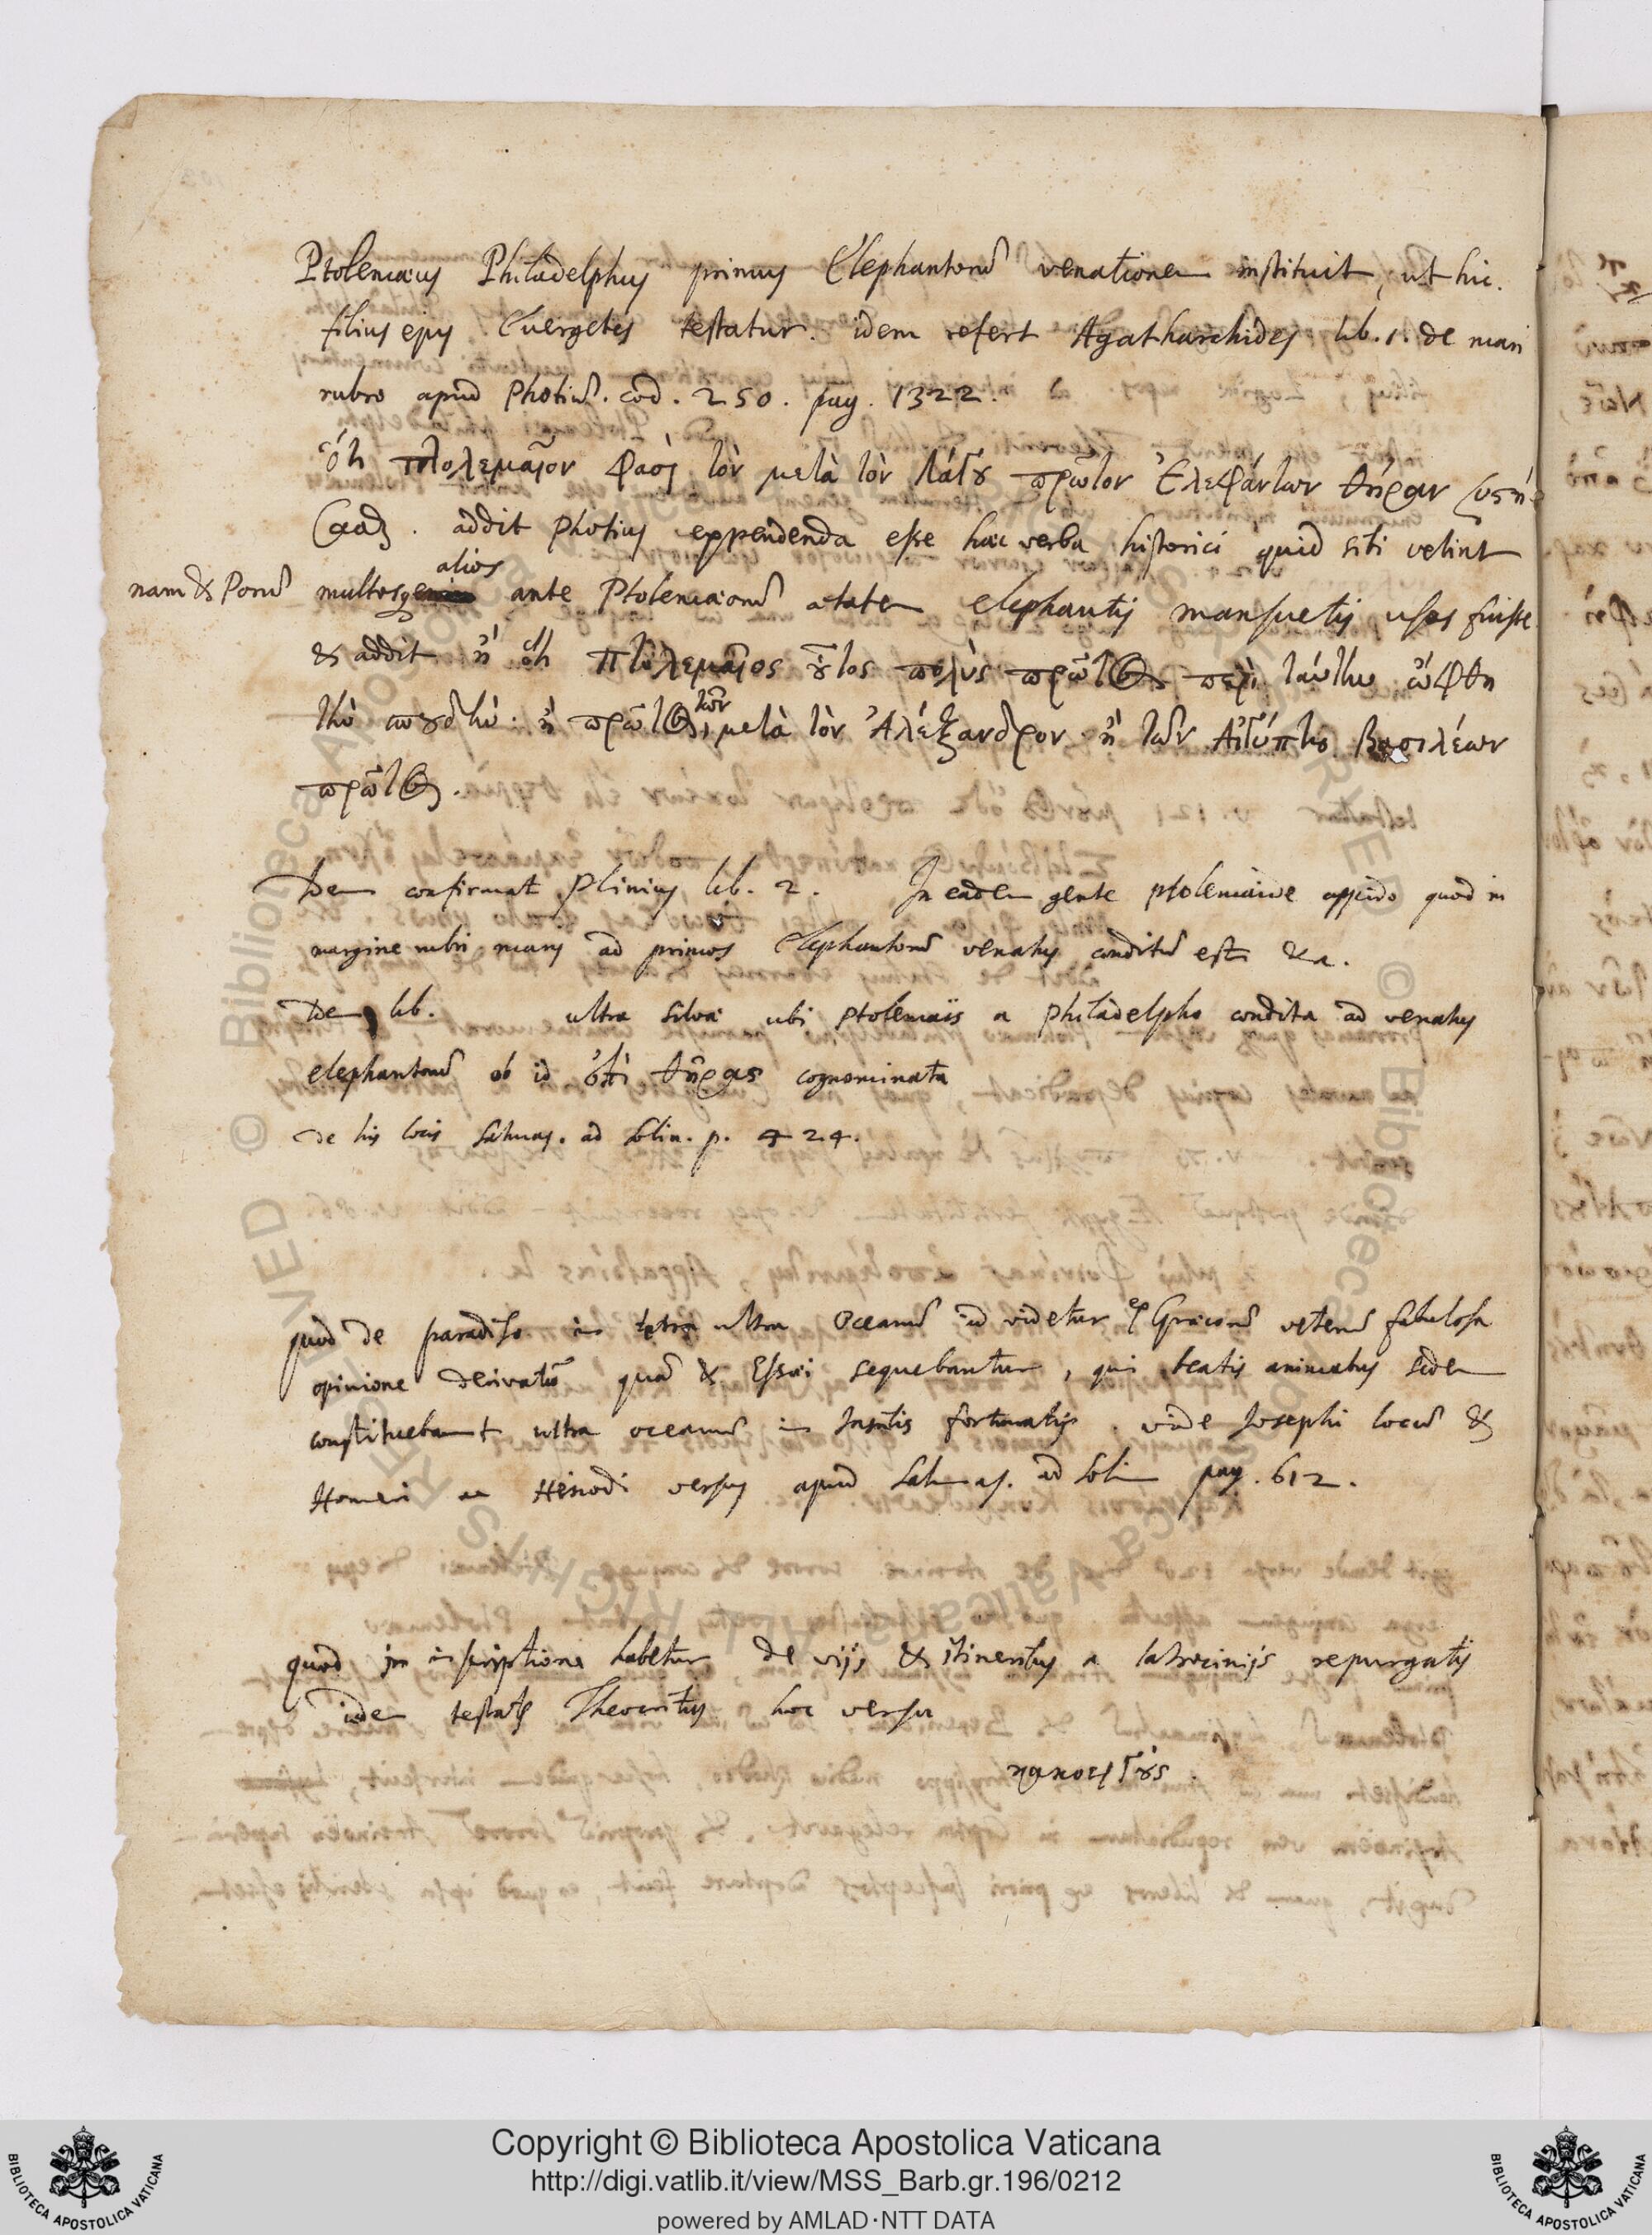 Ptolemæus Philadelphus primus Elephantorũ venationem instituit, ut hic.
filius ejus Euergetes testatur. idem refert Agatharchides lib. 1. de mari
rubro apud Photiũ. cod. 250. pag. 1322.
ὅτι πτολεμαῖον φασὶ τὸν μετὰ τὸν Λάγου πρῶτον Ἐλεφάντων θήραν συστή-
σασθ. addit Photius expendenda esse hæc verba historici quid sibi velint
nam & Porũ multosq alios ante Ptolemæorũ ætatem elephantis mansuetis usos fuisse
& addit ἢ ὅτι πτολεμαῖος οὗτος πολὺς πρῶτος περὶ ταύτην ὤφθη
τὴν σπουδὴν. ἢ πρῶτος τῶν μετὰ τὸν Ἀλέξανδρον ἢ τῶν Αἰγύπτου βασιλέων
πρῶτος.
Idem confirmat Plinius lib. 2. In eadem gente ptolemaide oppido quod in
margine rubri maris ad primos Elephantorũ venatus conditũ est &a.
Idem lib. ultra silva ubi ptolemais a philadelpho condita ad venatus
elephantorũ ob id ἐπὶ θήρας cognominata
de his locis Salmas. ad Solin. p. 424.
quod de paradiso in terra ultra Oceanũ id videtur ex Græcorũ veterũ fabulosa
opinione derivatũ quã & Essæi sequebantur, qui beatis animabus sedem
constituebant ultra oceanũ in Insulis fortunatis. vide Josephi locũ &
Homeri ac Hesiodi versus apud Salmas. ad Solin pag. 612.
quod in inscriptione habetur de viis & itineribus a latrociniis repurgatis
idem testatur Theocritus hoc versu
κακοεργούς.
Copyright © Biblioteca Apostolica Vaticana
http://digi.vatlib.it/view/MSS_Barb.gr.196/0212
powered by AMLAD·NTT DATA
BIBLIOTECA APOSTOLICA VATICANA
BIBLIOTECA APOSTOLICA VATICANA